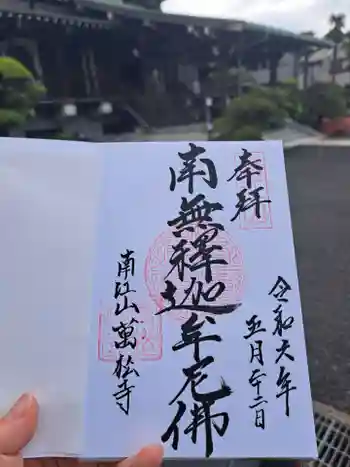 奉拝
令和六年
五月廿二日
南無釋迦牟尼佛
南江山 萬松寺